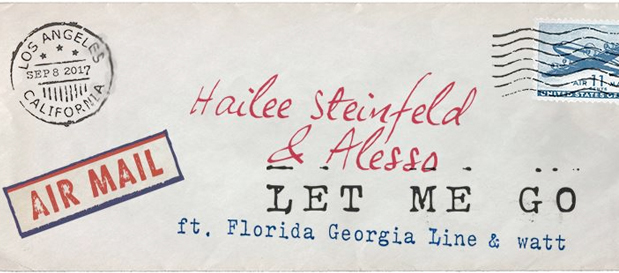 LOS ANGELES
SEP 8 2017
CALIFORNIA
AIR 11 MA
CENTS
UNITED STATES OF
AIR MAIL
Hailee Steinfeld
& Alesso
LET ME GO
ft. Florida Georgia Line & watt